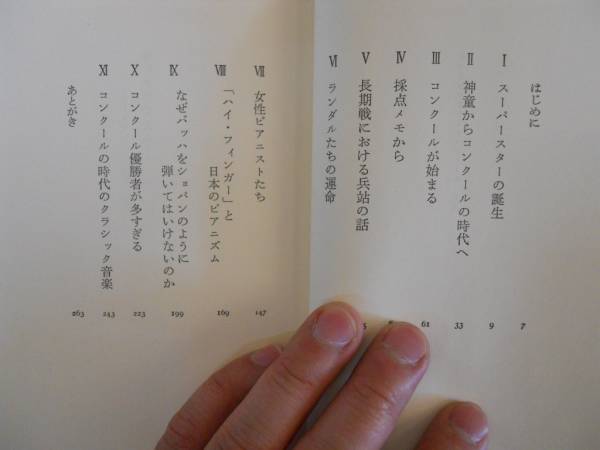 はじめに 7
Ⅰ スーパースターの誕生 9
Ⅱ 神童からコンクールの時代へ 33
Ⅲ コンクールが始まる 61
Ⅳ 採点メモから
Ⅴ 長期戦における兵站の話
Ⅵ ランダルたちの運命
Ⅶ 女性ピアニストたち 147
Ⅷ 「ハイ・フィンガー」と
日本のピアニズム 169
Ⅸ なぜバッハをショパンのように
弾いてはいけないのか 199
Ⅹ コンクール優勝者が多すぎる 223
Ⅺ コンクールの時代のクラシック音楽 243
あとがき 263